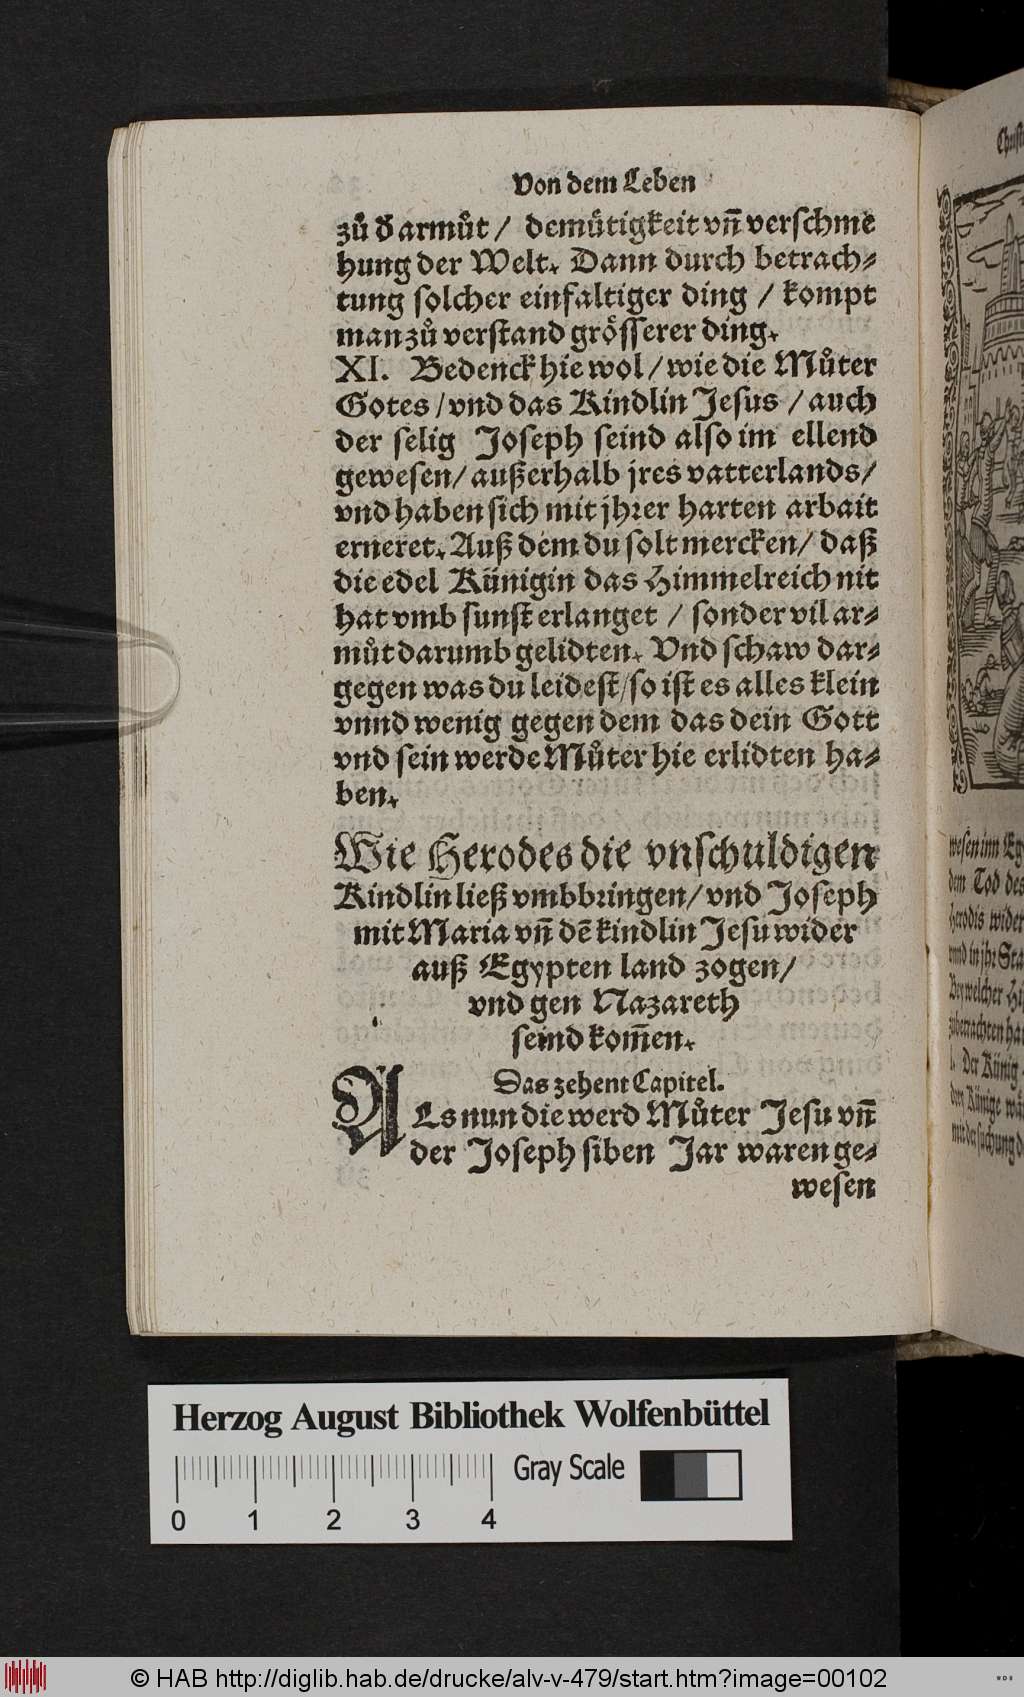 Von dem Leben
zů d̕ armůt / demütigkeit vñ verschme
hung der Welt. Dann durch betrach-
tung solcher einfaltiger ding / kompt
man zů verstand grösserer ding.
XI. Bedenck hie wol / wie die Můter
Gotes / vnd das Kindlin Jesus / auch
der selig Joseph seind also im ellend
gewesen / außerhalb jres vatterlands /
vnd haben sich mit jhrer harten arbait
erneret. Auß dem du solt mercken / daß
die edel Künigin das Himmelreich nit
hat vmb sunst erlanget / sonder vil ar-
můt darumb gelidten. Vnd schaw dar-
gegen was du leidest / so ist es alles klein
vnnd wenig gegen dem das dein Gott
vnd sein werde Můter hie erlidten ha-
ben.
Wie Herodes die vnschuldigen
Kindlin ließ vmbbringen / vnd Joseph
mit Maria vñ dē kindlin Jesu wider
auß Egypten land zogen /
vnd gen Nazareth
seind kom̄en.
Das zehent Capitel.
ALs nun die werd Můter Jesu vñ
der Joseph siben Jar waren ge-
wesen
wesen inn
dem Tod des
Herodis wider
vnnd in jhr
Bey welcher
zubetrachten
I. Der Künig
dem Künige
mit der suchung
Herzog August Bibliothek Wolfenbüttel
Gray Scale
0 1 2 3 4
© HAB http://diglib.hab.de/drucke/alv-v-479/start.htm?image=00102